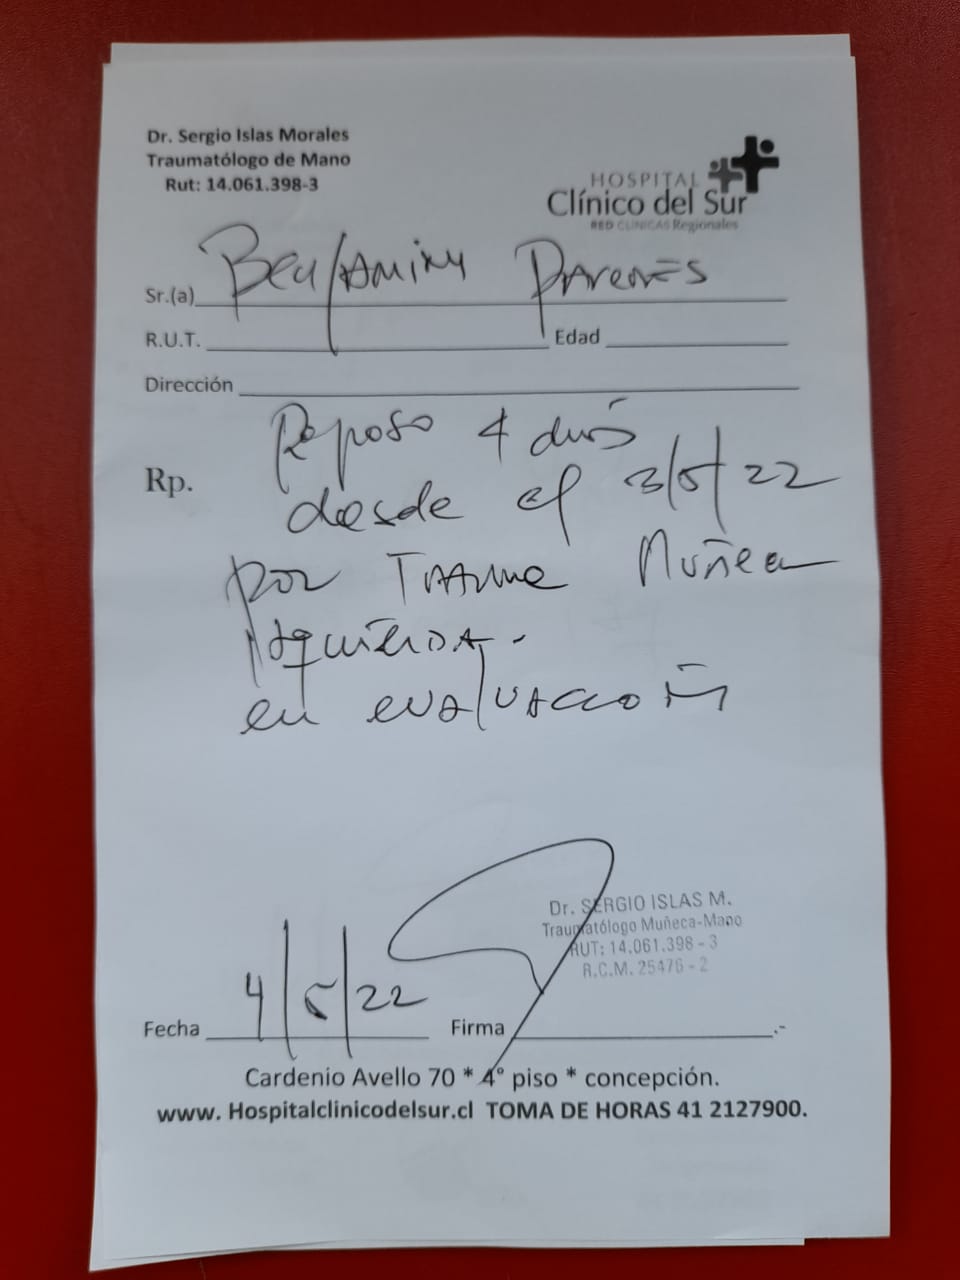 Dr. Sergio Islas Morales
Traumatólogo de Mano
Rut: 14.061.398-3
HOSPITAL
Clínico del Sur
RED CLINICAS Regionales
Sr.(a) Benjamin
R.U.T. Edad
Dirección
Rp.
Reposo 4 días
desde el 3/5/22
por Trauma Muñeca
Izquierda.
en evaluación
Dr. SERGIO ISLAS M.
Traumatólogo Muñeca-Mano
RUT: 14.061.398 - 3
R.C.M. 25476 - 2
Fecha 4/5/22 Firma .-
Cardenio Avello 70 * 4° piso * concepción.
www. Hospitalclinicodelsur.cl TOMA DE HORAS 41 2127900.